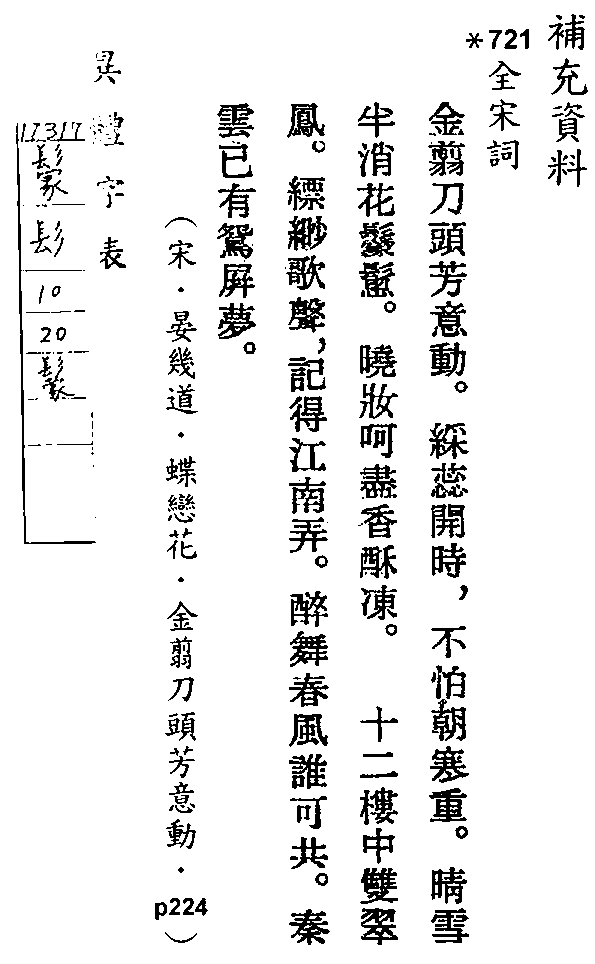 補充資料
*721 全宋詞
金翦刀頭芳意動。綵蕊開時，不怕朝寒重。晴雪
半消花。曉妝呵盡香酥凍。　十二樓中雙翠
鳳。縹緲歌聲，記得江南弄。醉舞春風誰可共。秦
雲已有鴛屏夢。
（宋．晏幾道．蝶戀花．金翦刀頭芳意動．p224）
異體字表
17317
髟
10
20